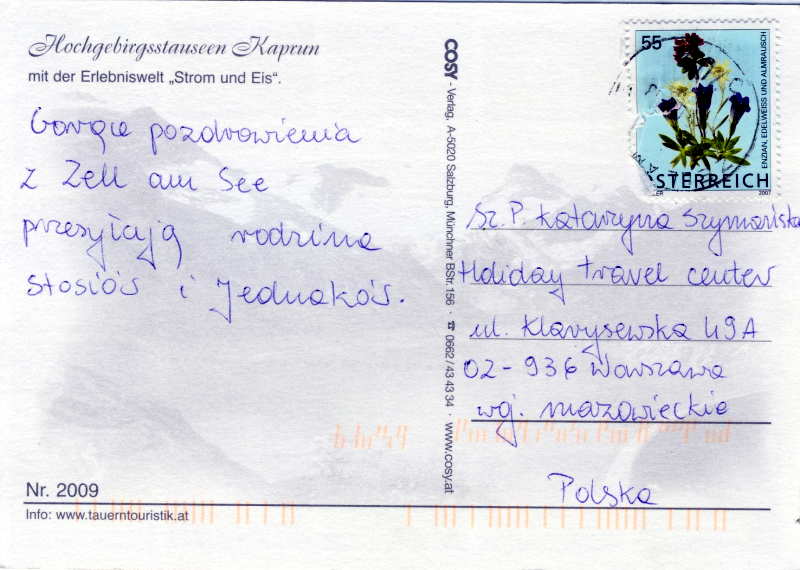 Hochgebirgsstauseen Kaprun
mit der Erlebniswelt „Strom und Eis“.
Gorące pozdrowienia
z Zell am See
przesyłają rodzina
Stosiów i Jednaków.
Nr. 2009
Info: www.tauerntouristik.at
COSY - Verlag, A-5020 Salzburg, Münchner BStr. 156 · ☎ 0662 / 43 43 34 · www.cosy.at
55
ENZIAN, EDELWEISS UND ALMRAUSCH
STERREICH
2007
Sz. P. Katarzyna Szymańska
Holiday Travel Center
ul. Klarysewska 49A
02-936 Warszawa
woj. mazowieckie
Polska